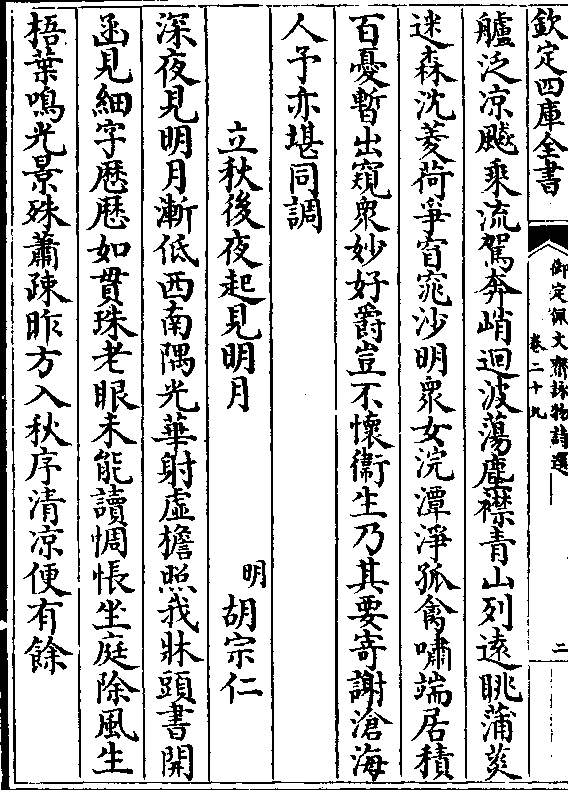 欽定四庫全書
御定佩文齋詠物詩選
卷二十九
二
艫泛凉飈乘流駕奔峭迴波蕩塵襟青山列遠眺蒲莢
迷森沈菱荷爭窅窕沙明衆女浣潭淨孤禽嘯端居積
百憂暫出窺衆妙好爵豈不懷衞生乃其要寄謝滄海
人予亦堪同調
立秋後夜起見明月
明
胡宗仁
深夜見明月漸低西南隅光華射虛檐照我牀頭書開
函見細字歴歴如貫珠老眼未能讀惆悵坐庭除風生
梧葉鳴光景殊蕭疎昨方入秋序清凉便有餘